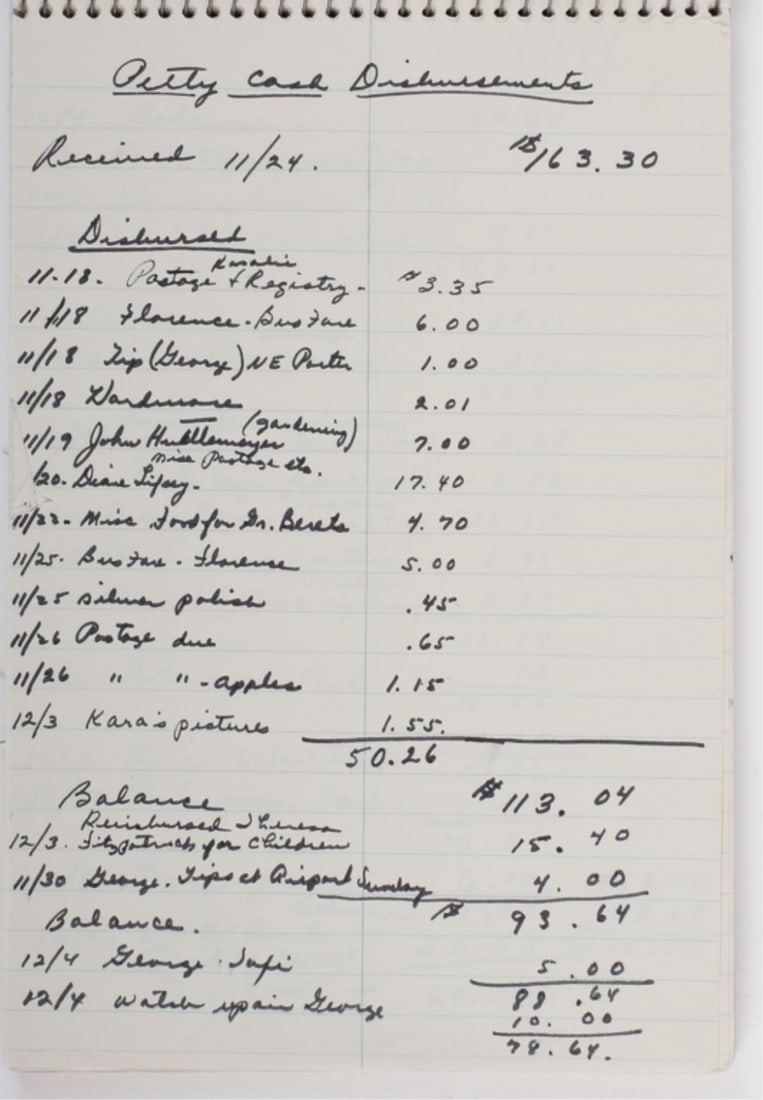 Petty Cash Disbursements
Received 11/24. $163.30
Disbursed
11-18. Postage & Registry - $3.35
11/18 Florence - Bus Fare 6.00
11/18 Tip (George) NE Porter 1.00
11/18 Hardware 2.01
(gardening)
11/19 John Huttlemeyer 7.00
misc Postage etc.
/20. Diane Lipsey. 17.40
11/22 - Misc Food for Gr. Berets 4.70
11/25. Bus Fare - Florence 5.00
11/25 silver polish .45
11/26 Postage due .65
11/26 " " - apples 1.15
12/3 Kara's pictures 1.55.
50.26
Balance $113.04
Reimbursed Theresa
12/3. Fitzpatrick for children 15.40
11/30 George. Tips at Airport Sunday 4.00
Balance. $ 93.64
12/4 George. 5.00
88.64
12/4 watch repair George 10.00
78.64.